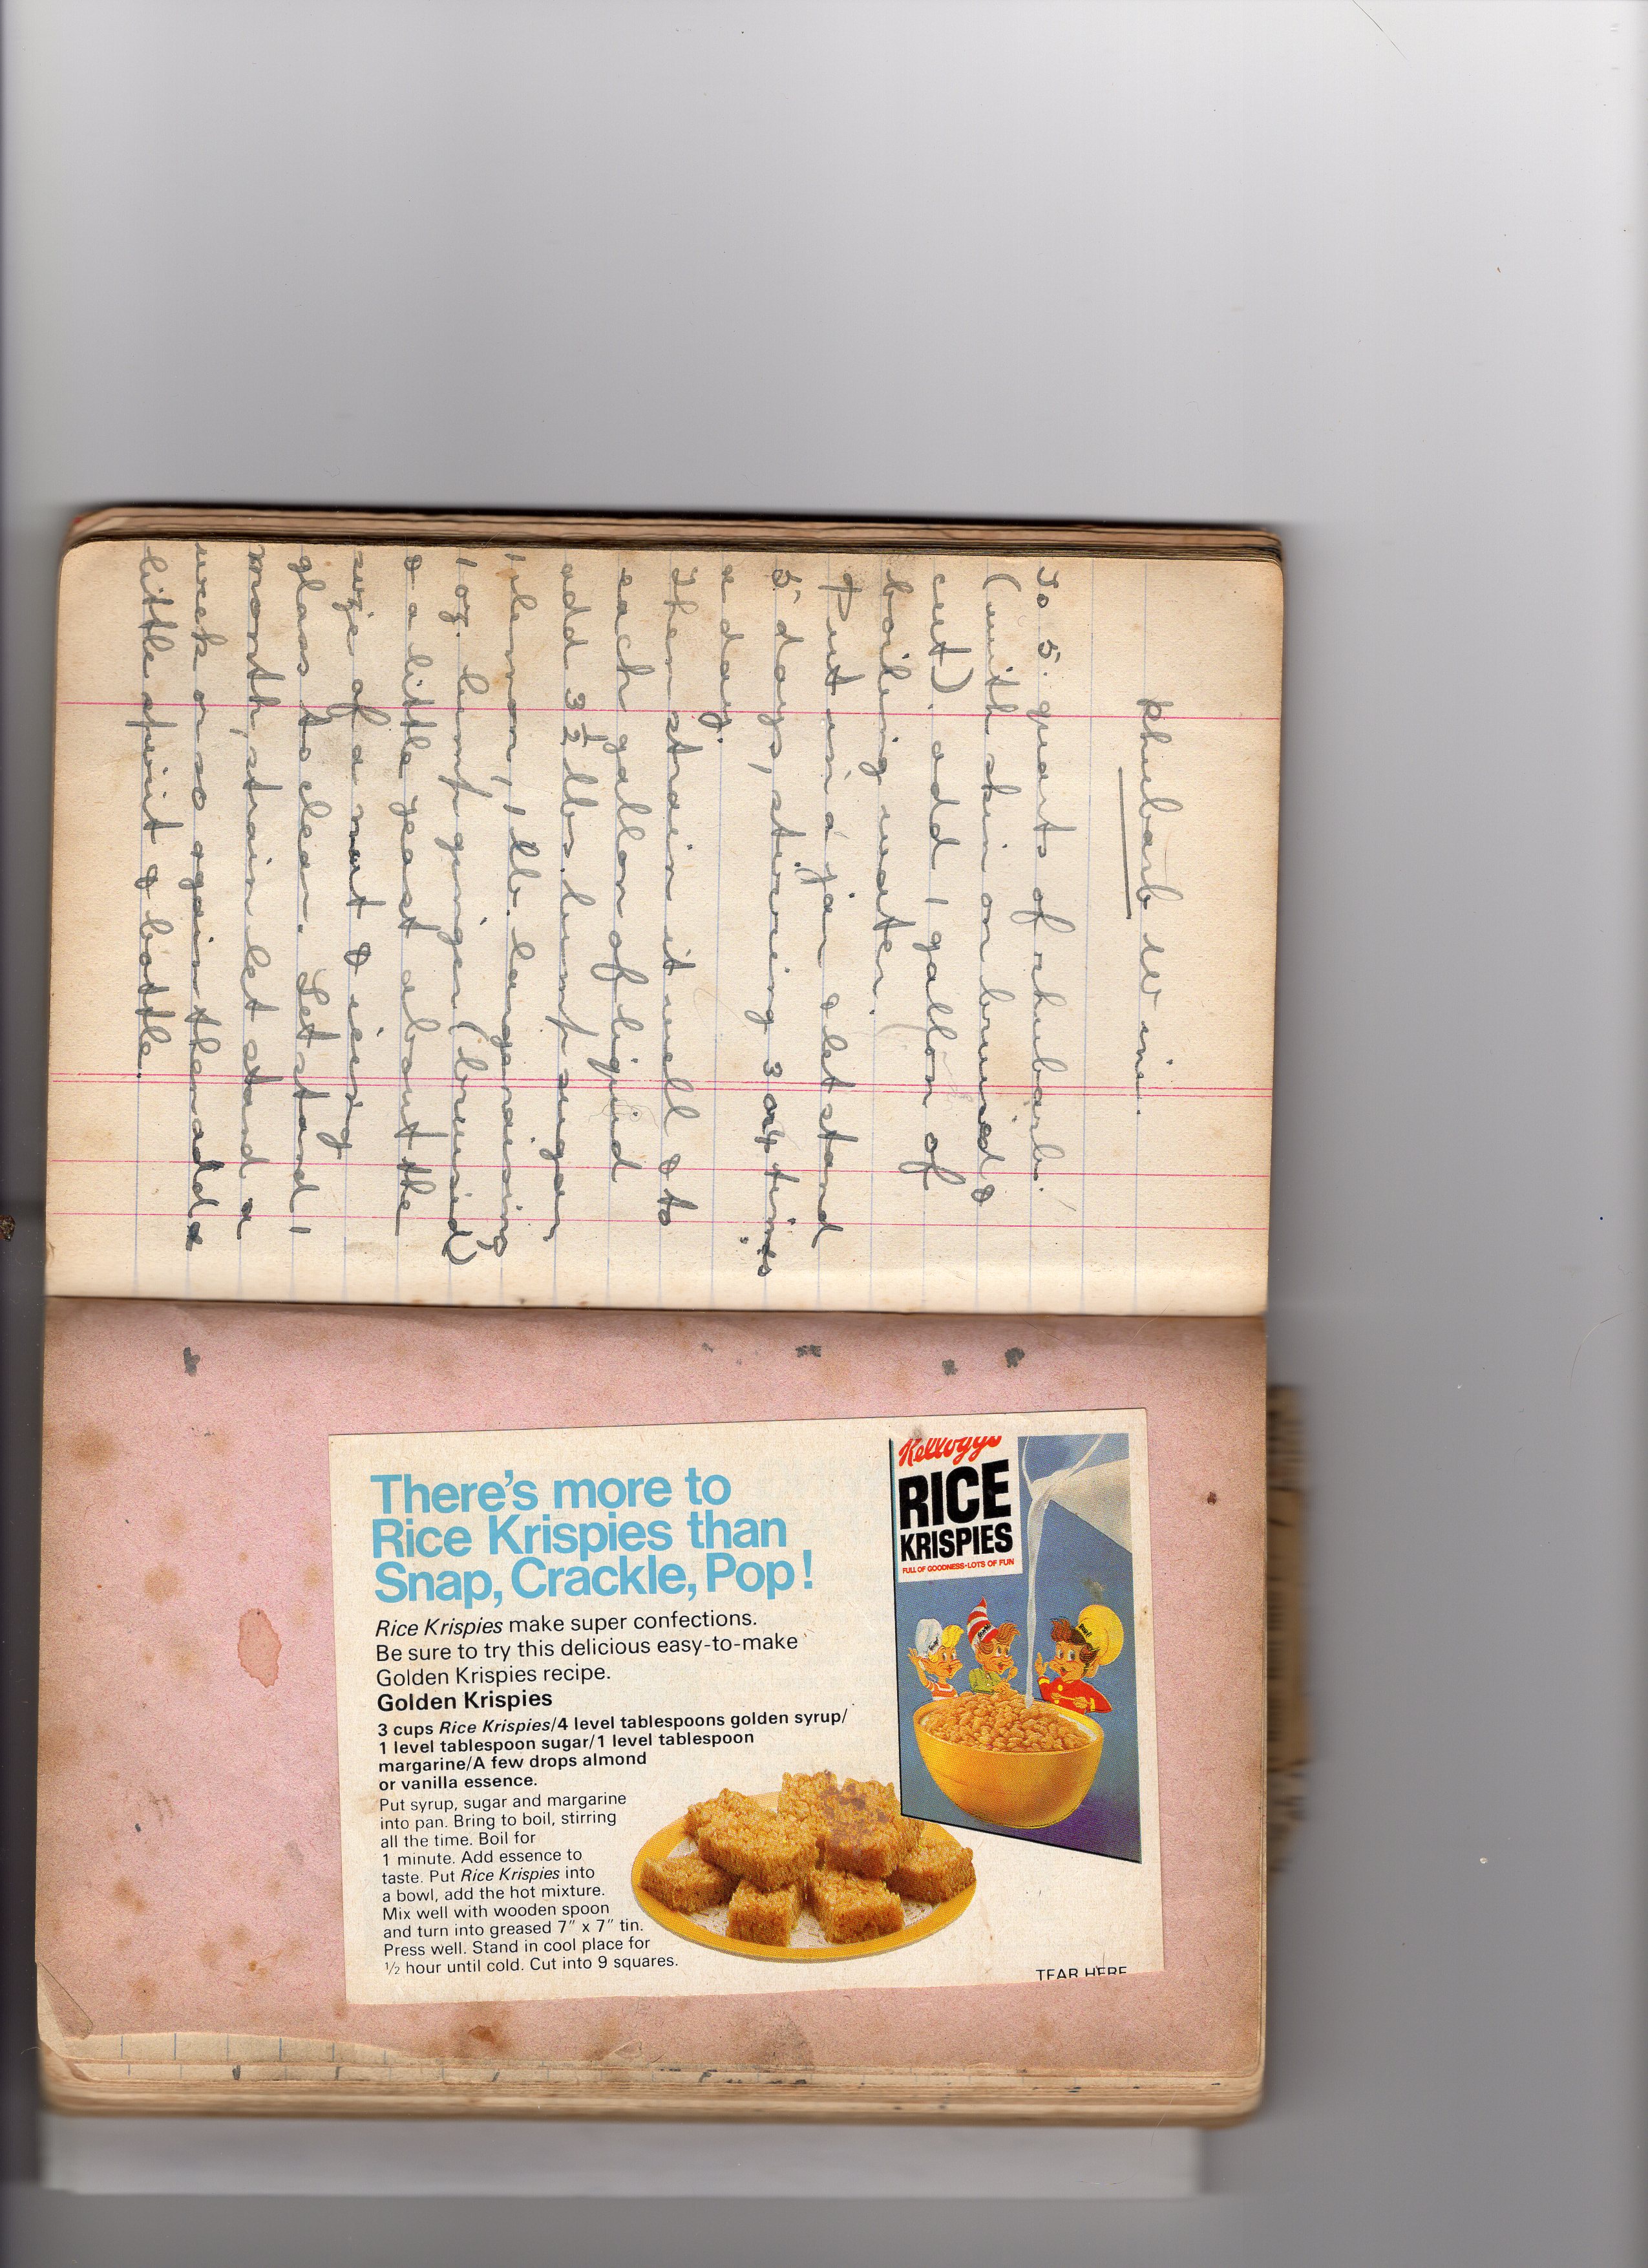 Rhubarb Wine.
To 5 quarts of rhubarb
(with skin on bruised &
cut). add 1 gallon of
boiling water.
Put in a jar & let stand
5 days, stirring 3 or 4 times
a day.
Then strain it well & to
each gallon of liquid
add 3½ lbs. lump sugar
1 lemon, 1 lb. large raisins
1 oz. lump ginger (bruised)
& a little yeast about the
size of a nut & ising
glass to clear. Let stand 1
month, strain let stand a
week or so again then add a
little spirit & bottle.
There's more to
Rice Krispies than
Snap, Crackle, Pop!
Rice Krispies make super confections.
Be sure to try this delicious easy-to-make
Golden Krispies recipe.
Golden Krispies
3 cups Rice Krispies/4 level tablespoons golden syrup/
1 level tablespoon sugar/1 level tablespoon
margarine/A few drops almond
or vanilla essence.
Put syrup, sugar and margarine
into pan. Bring to boil, stirring
all the time. Boil for
1 minute. Add essence to
taste. Put Rice Krispies into
a bowl, add the hot mixture.
Mix well with wooden spoon
and turn into greased 7" x 7" tin.
Press well. Stand in cool place for
½ hour until cold. Cut into 9 squares.
Kellogg's
RICE
KRISPIES
FULL OF GOODNESS-LOTS OF FUN
TEAR HERE